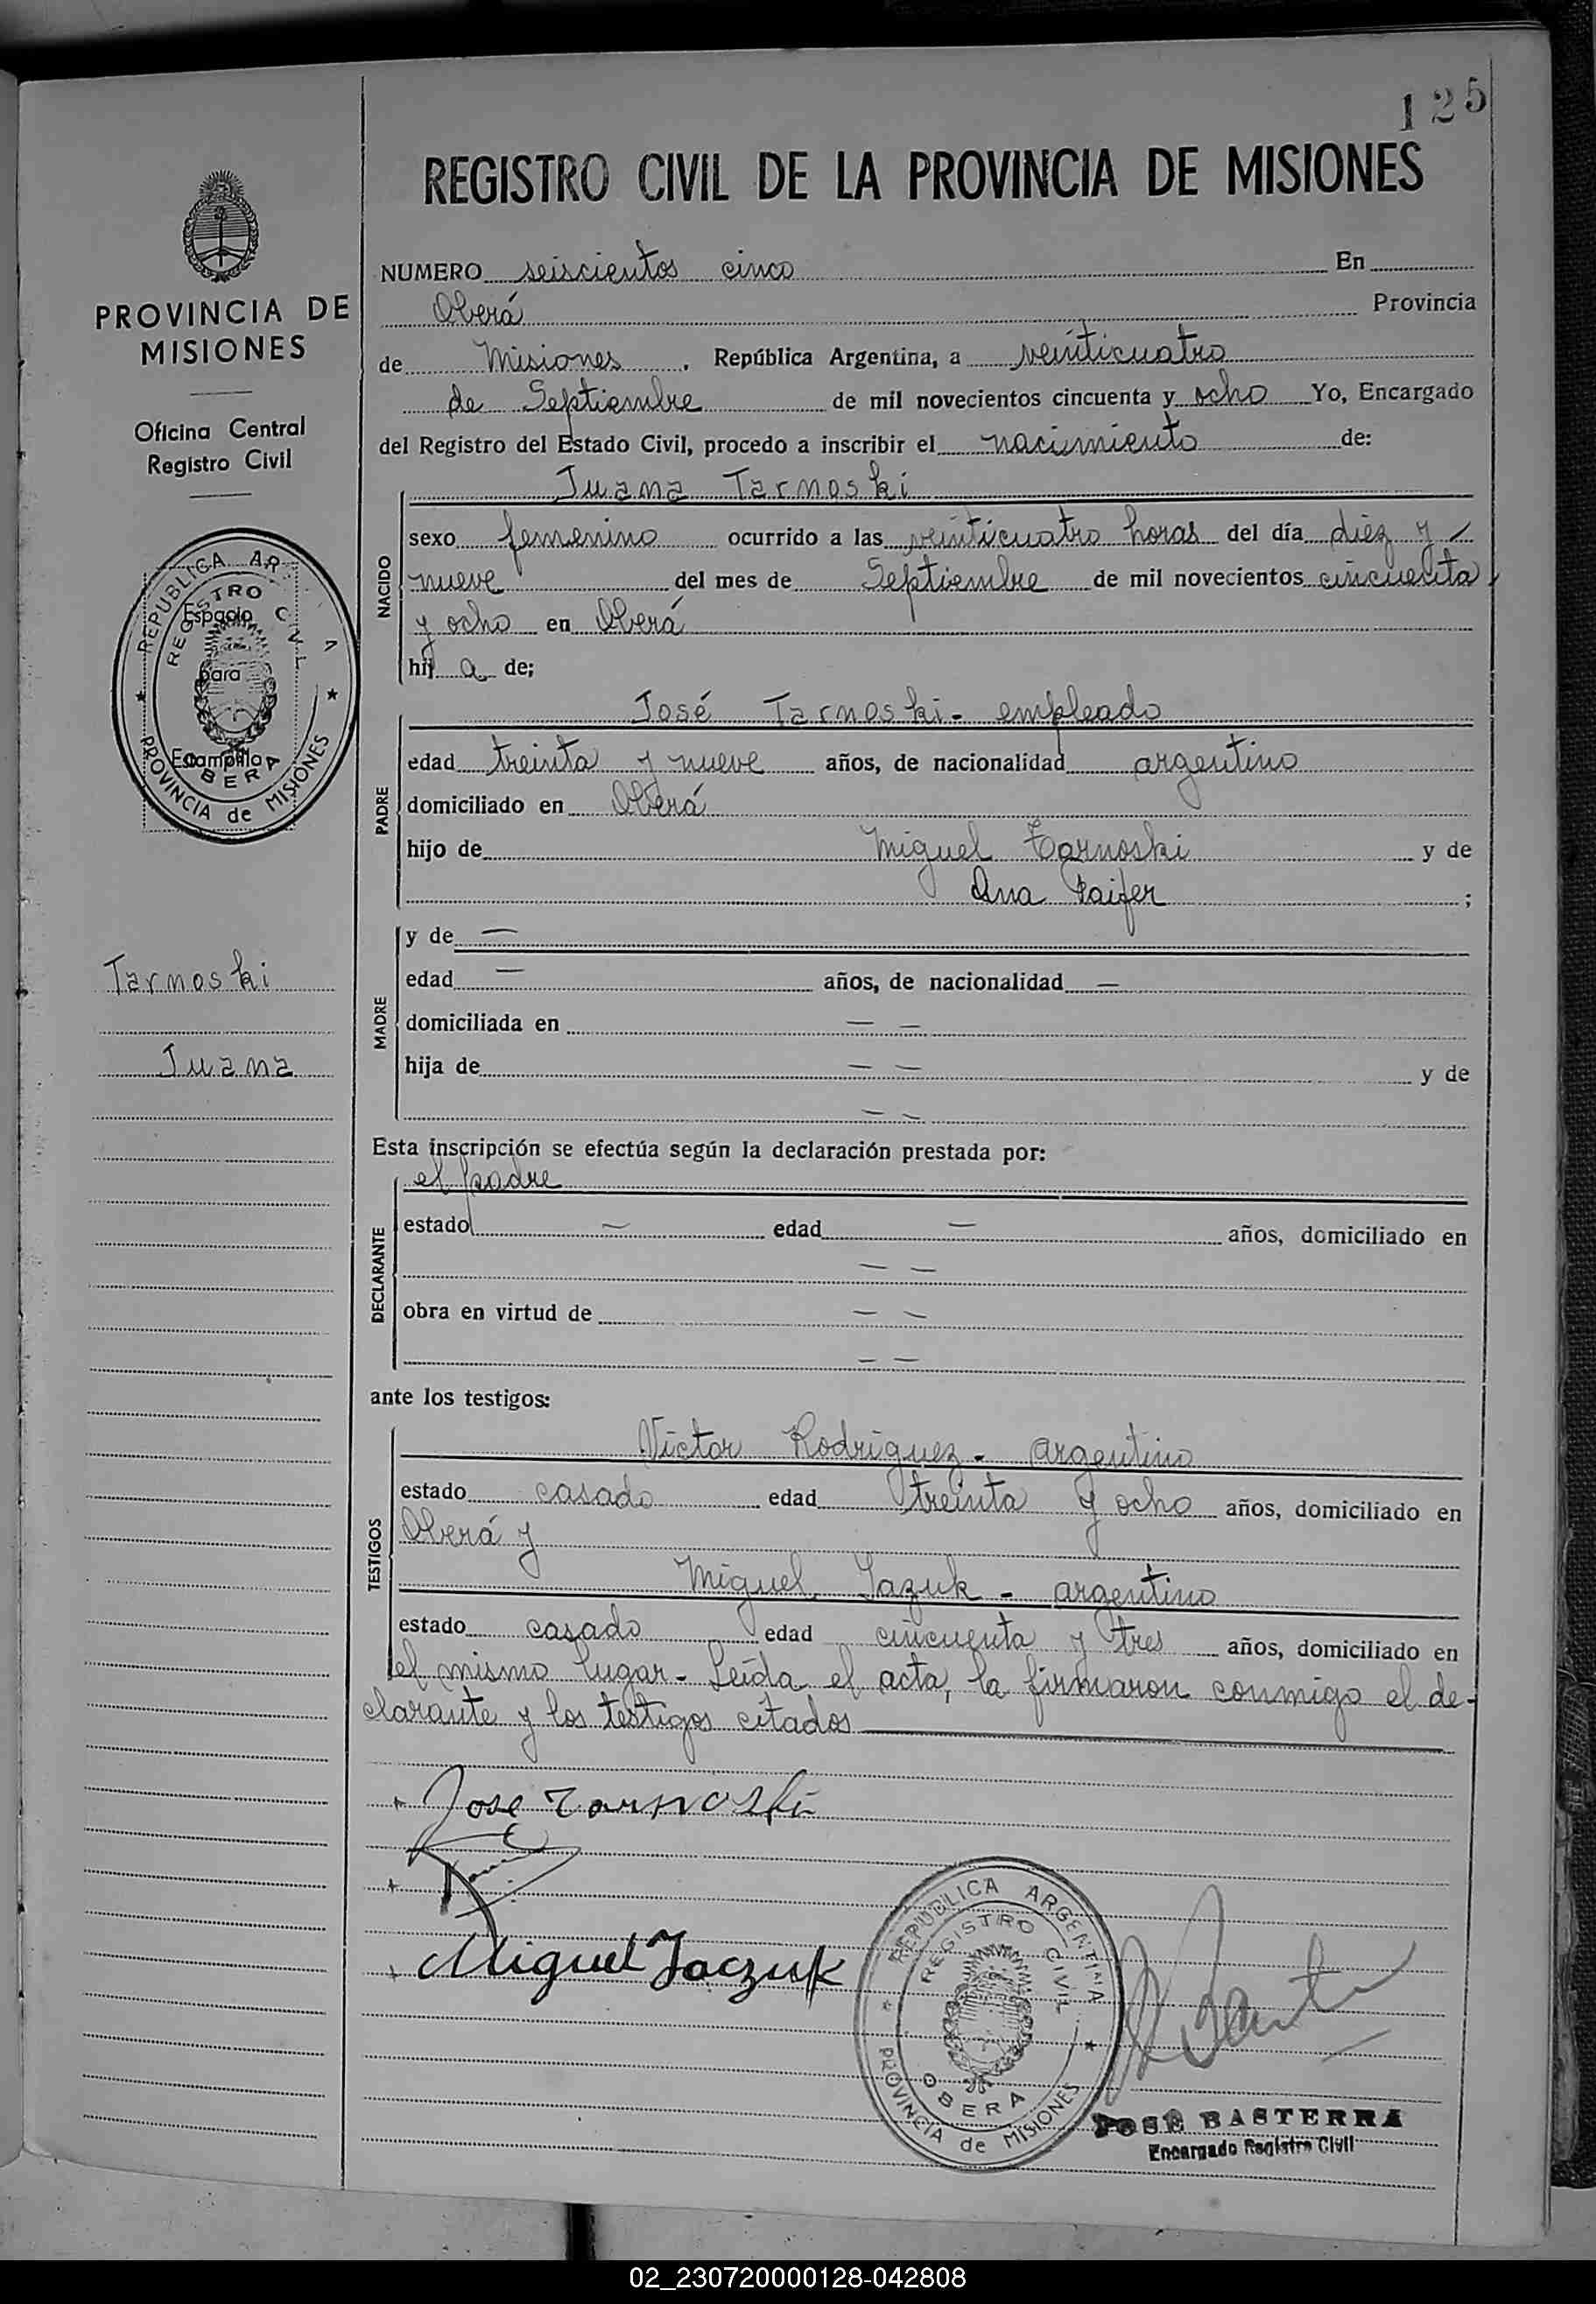 125
REGISTRO CIVIL DE LA PROVINCIA DE MISIONES
NUMERO seiscientos cinco En
Oberá Provincia
de Misiones, República Argentina, a veinticuatro
de Septiembre de mil novecientos cincuenta y ocho Yo, Encargado
del Registro del Estado Civil, procedo a inscribir el nacimiento de:
Juana Tarnoski
NACIDO
sexo femenino ocurrido a las veinticuatro horas del día diez y
nueve del mes de Septiembre de mil novecientos cincuenta
y ocho en Oberá
hij a de;
José Tarnoski - empleado
PADRE
edad treinta y nueve años, de nacionalidad argentino
domiciliado en Oberá
hijo de Miguel Tarnoski y de
Ana Paifer ;
MADRE
y de —
edad — años, de nacionalidad —
domiciliada en — —
hija de — — y de
— —
Esta inscripción se efectúa según la declaración prestada por:
el padre
DECLARANTE
estado — edad — años, domiciliado en
— —
obra en virtud de — —
— —
ante los testigos:
TESTIGOS
Victor Rodriguez - argentino
estado casado edad treinta y ocho años, domiciliado en
Oberá y
Miguel Jazuk - argentino
estado casado edad cincuenta y tres años, domiciliado en
el mismo lugar - Leída el acta, la firmaron conmigo el de-
clarante y los testigos citados
Jose Tarnoski
Miguel Jaczuk
REPUBLICA ARGENTINA
REGISTRO CIVIL
OBERA
PROVINCIA de MISIONES
JOSÉ BASTERRA
Encargado Registro Civil
PROVINCIA DE
MISIONES
Oficina Central
Registro Civil
REPUBLICA AR A
REGISTRO CIVIL
Espacio
para
Estampilla
OBERA
PROVINCIA de MISIONES
Tarnoski
Juana
02_230720000128-042808